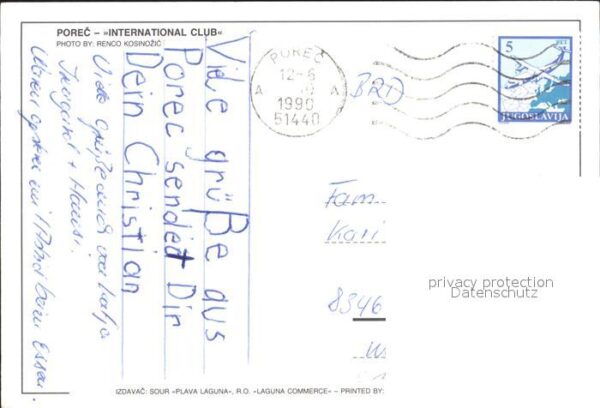 POREČ – »INTERNATIONAL CLUB«
PHOTO BY: RENCO KOSINOŽIĆ
Viele grüße aus
Porec sendet Dir
Dein Christian
Viele Grüße auch von Katja
Irmgard + Hansi.
beim Essen.
POREČ
12-6
A A
1990
51440
BRD
5
PTT
JUGOSLAVIJA
Fam
Kari
8346
privacy protection
Datenschutz
IZDAVAČ: SOUR »PLAVA LAGUNA«, R.O. »LAGUNA COMMERCE« – PRINTED BY: